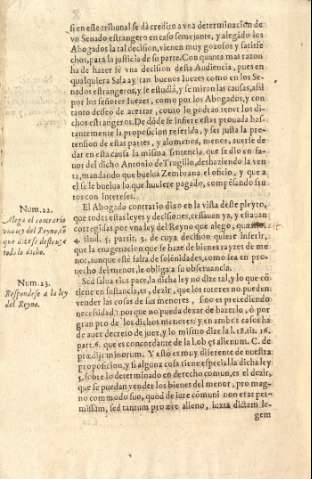 si en este tribunal se dà credito a vna determinacion de
vn Senado estrangero en caso semejante, y alegādo los
Abogados la tal decision, vienen muy gozosos y satisfe
chos, para la justicia de su parte. Con quanta mas razon
ha de hazer fè vna decision desta Audiencia, pues en
qualquiera Sala ay tan buenos Iuezes como en los Se-
nados estrangeros, y se estudiā, y se miran las causas, assi
por los señores Iuezes, como por los Abogados, y con
tanto desseo de acertar, como lo podràn tener los di-
chos estrangeros. De dōde se infiere estar prouada bas-
tantemente la proposicion referida, y ser justa la pre-
tension de estas partes, y alomenos, menos, auerse de
dar en esta causa la misma sentencia, que se dio en fa-
uor del dicho Antonio de Trugillo, deshaziendo la ven
ta, mandando que buelua Zembrana el oficio, y que a
el se le buelua lo que huuiere pagado, compēsando fru-
tos con intereses.
Num. 22.
Alega el contrario
vna ley del Reyno, cō
que dize se destruye
todo lo dicho.
El Abogado contrario dixo en la vista deste pleyto,
que todas estas leyes y decisiones, cessauan ya, y estauan
corregidas por vna ley del Reyno que alego, que es la
4. titul. 5. partit. 5. de cuya decision quiere inferir,
que la enagenacion que se haze de bienes rayzes de me-
nor, aunque estè falta de solēnidades, como sea en pro-
uecho del menor, le obliga a su obseruancia.
Num. 23.
Respondese a la ley
del Reyno.
Sed salua eius pace, la dicha ley no dize tal, y lo que cō
tiene en sustancia, es, dezir, que los tutores no pueden
vender las cosas de sus menores, sino es precediendo
necessidad, o por que no pueda dexar de hazerlo, ò por
gran pro de los dichos menores: y en ambos casos ha
de auer decreto de juez, y lo mismo dize la l. 18. tit. 16.
part. 6. que es concordante de la l. ob æs alienum. C. de
præd. minorum. Y esto es muy diferente de nuestra
proposicion, y si alguna cosa tiene especial la dicha ley
sobre lo determinado en derecho comun, es el dezir,
que se puedan vender los bienes del menor, pro mag-
no commodo suo, quod de iure communi non erat per-
missum, sed tantum pro ære alieno, iuxta dictam le-
gem